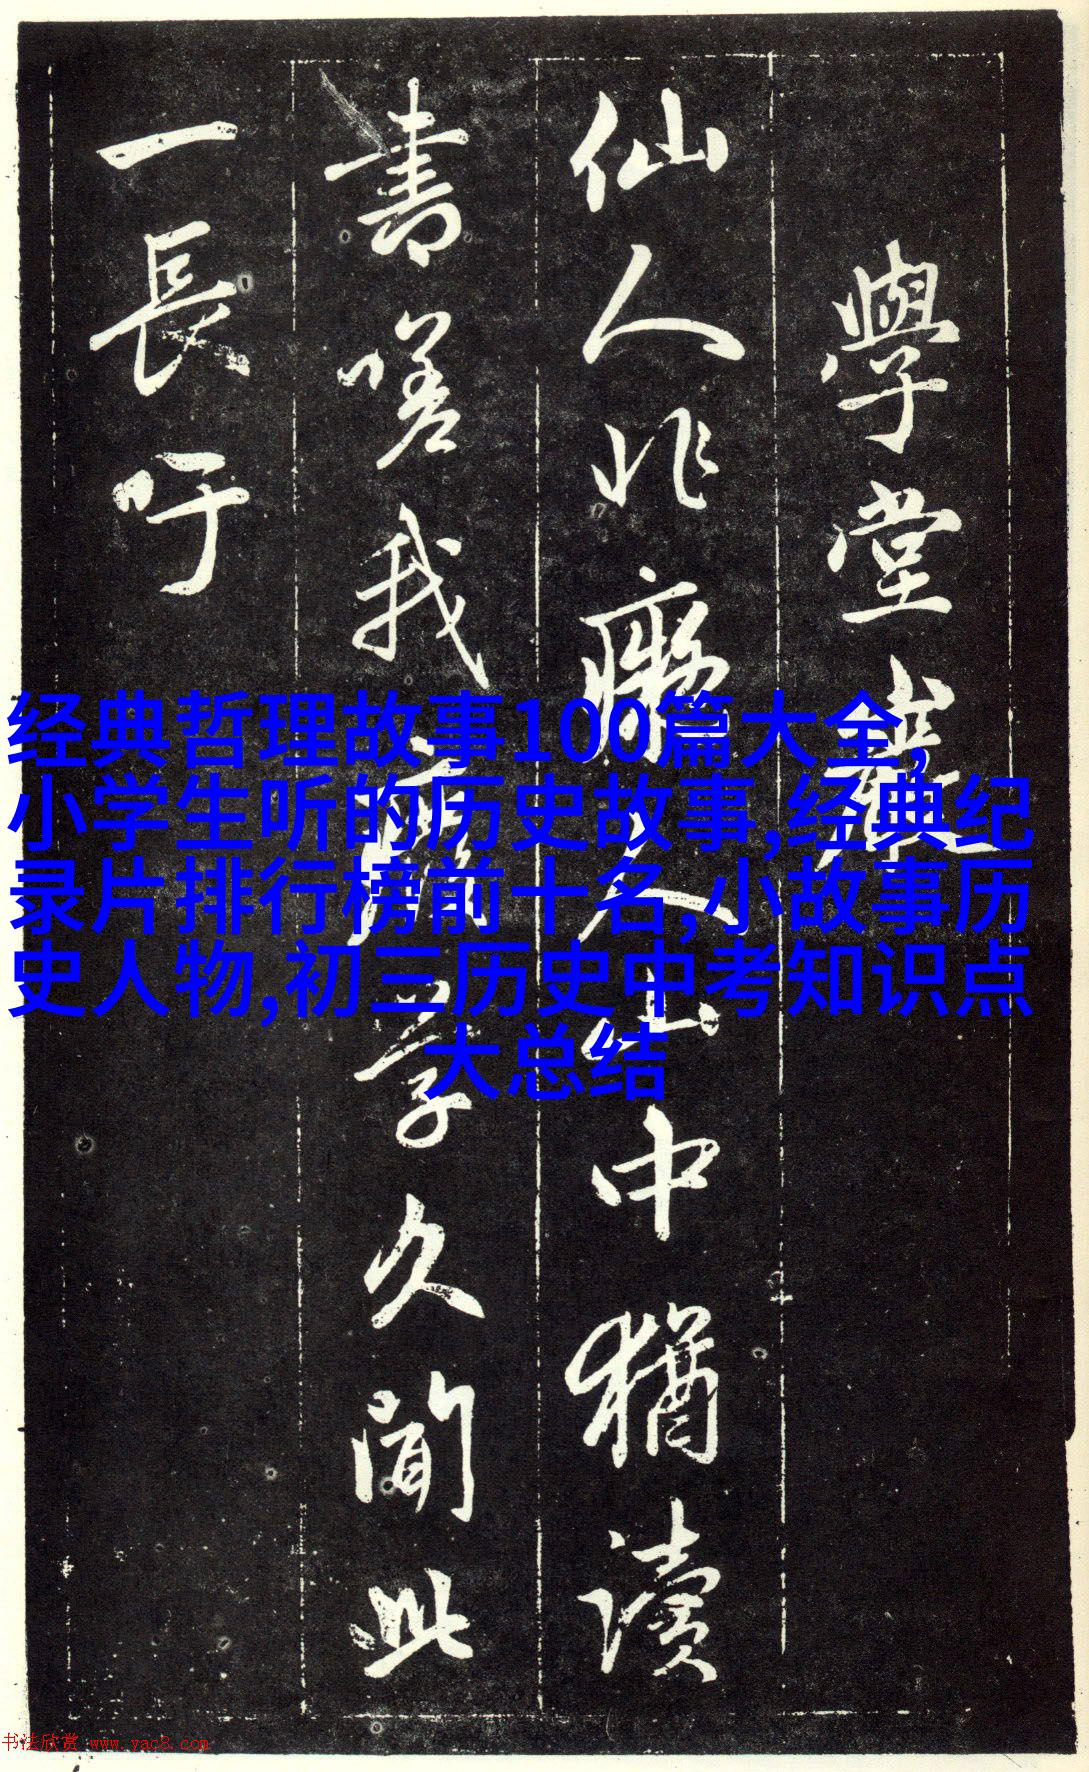 學堂巖
仙人非癡人山中猶讀
書嗟我廢學久聞此
一長吁
经典哲理故事100篇大全,
小学生听的历史故事,经典纪
录片排行榜前十名,小故事历
史人物,初三历史中考知识点
大总结
书法欣赏 www.yac8.com